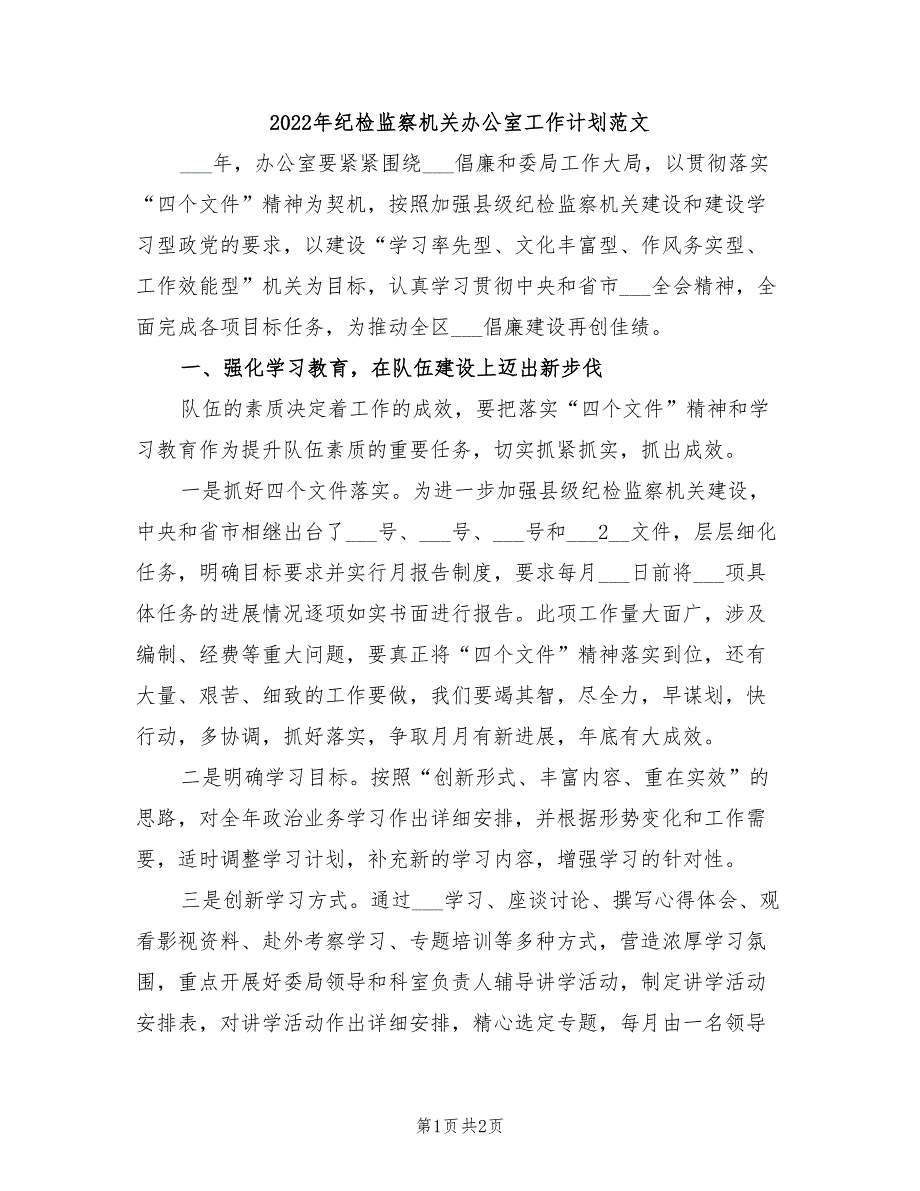 2022年纪检监察机关办公室工作计划范文
___年，办公室要紧紧围绕___倡廉和委局工作大局，以贯彻落实
“四个文件”精神为契机，按照加强县级纪检监察机关建设和建设学
习型政党的要求，以建设“学习率先型、文化丰富型、作风务实型、
工作效能型”机关为目标，认真学习贯彻中央和省市___全会精神，全
面完成各项目标任务，为推动全区___倡廉建设再创佳绩。
一、强化学习教育，在队伍建设上迈出新步伐
队伍的素质决定着工作的成效，要把落实“四个文件”精神和学
习教育作为提升队伍素质的重要任务，切实抓紧抓实，抓出成效。
一是抓好四个文件落实。为进一步加强县级纪检监察机关建设，
中央和省市相继出台了___号、___号、___号和___2__文件，层层细化
任务，明确目标要求并实行月报告制度，要求每月___日前将___项具
体任务的进展情况逐项如实书面进行报告。此项工作量大面广，涉及
编制、经费等重大问题，要真正将“四个文件”精神落实到位，还有
大量、艰苦、细致的工作要做，我们要竭其智，尽全力，早谋划，快
行动，多协调，抓好落实，争取月月有新进展，年底有大成效。
二是明确学习目标。按照“创新形式、丰富内容、重在实效”的
思路，对全年政治业务学习作出详细安排，并根据形势变化和工作需
要，适时调整学习计划，补充新的学习内容，增强学习的针对性。
三是创新学习方式。通过___学习、座谈讨论、撰写心得体会、观
看影视资料、赴外考察学习、专题培训等多种方式，营造浓厚学习氛
围，重点开展好委局领导和科室负责人辅导讲学活动，制定讲学活动
安排表，对讲学活动作出详细安排，精心选定专题，每月由一名领导
第1页共2页